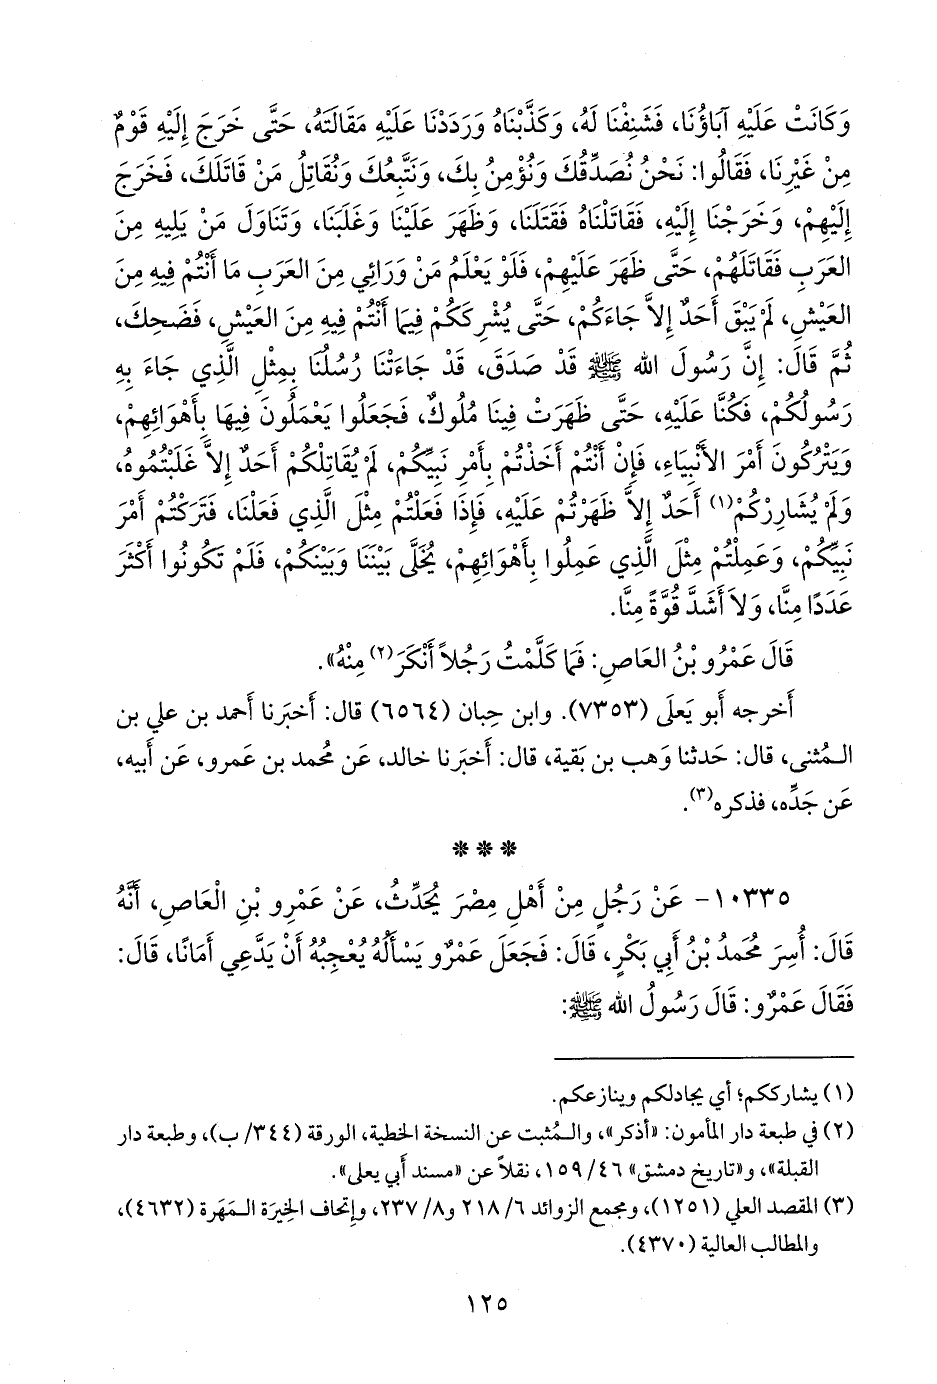 وَكَانَتْ عَلَيْهِ آبَاؤُنَا، فَشَنِفْنَا لَهُ، وَكَذَّبْنَاهُ وَرَدَدْنَا عَلَيْهِ مَقَالَتَهُ، حَتَّى خَرَجَ إِلَيْهِ قَوْمٌ
مِنْ غَيْرِنَا، فَقَالُوا: نَحْنُ نُصَدِّقُكَ وَنُؤْمِنُ بِكَ، وَنَتَّبِعُكَ وَنُقَاتِلُ مَنْ قَاتَلَكَ، فَخَرَجَ
إِلَيْهِمْ، وَخَرَجْنَا إِلَيْهِ، فَقَاتَلْنَاهُ فَقَتَلَنَا، وَظَهَرَ عَلَيْنَا وَغَلَبَنَا، وَتَنَاوَلَ مَنْ يَلِيهِ مِنَ
العَرَبِ فَقَاتَلَهُمْ، حَتَّى ظَهَرَ عَلَيْهِمْ، فَلَوْ يَعْلَمُ مَنْ وَرَائِي مِنَ العَرَبِ مَا أَنْتُمْ فِيهِ مِنَ
العَيْشِ، لَمْ يَبْقَ أَحَدٌ إِلاَّ جَاءَكُمْ، حَتَّى يُشْرِكَكُمْ فِيمَا أَنْتُمْ فِيهِ مِنَ العَيْشِ، فَضَحِكَ،
ثُمَّ قَالَ: إِنَّ رَسُولَ الله ﷺ قَدْ صَدَقَ، قَدْ جَاءَتْنَا رُسُلُنَا بِمِثْلِ الَّذِي جَاءَ بِهِ
رَسُولُكُمْ، فَكُنَّا عَلَيْهِ، حَتَّى ظَهَرَتْ فِينَا مُلُوكٌ، فَجَعَلُوا يَعْمَلُونَ فِيهَا بِأَهْوَائِهِمْ،
وَيَتْرُكُونَ أَمْرَ الأَنْبِيَاءِ، فَإِنْ أَنْتُمْ أَخَذْتُمْ بِأَمْرِ نَبِيِّكُمْ، لَمْ يُقَاتِلْكُمْ أَحَدٌ إِلاَّ غَلَبْتُمُوهُ،
وَلَمْ يُشَارِرْكُمْ(١) أَحَدٌ إِلاَّ ظَهَرْتُمْ عَلَيْهِ، فَإِذَا فَعَلْتُمْ مِثْلَ الَّذِي فَعَلْنَا، فَتَرَكْتُمْ أَمْرَ
نَبِيِّكُمْ، وَعَمِلْتُمْ مِثْلَ الَّذِي عَمِلُوا بِأَهْوَائِهِمْ، يُخَلَّى بَيْنَنَا وَبَيْنَكُمْ، فَلَمْ تَكُونُوا أَكْثَرَ
عَدَدًا مِنَّا، وَلاَ أَشَدَّ قُوَّةً مِنَّا.
قَالَ عَمْرُو بْنُ العَاصِ: فَمَا كَلَّمْتُ رَجُلاً أَنْكَرَ(٢) مِنْهُ».
أَخرجه أَبو يَعلَى (٧٣٥٣). وابن حِبان (٦٥٦٤) قال: أَخبَرنا أَحمد بن علي بن
المُثنى، قال: حَدثنا وَهب بن بَقية، قال: أَخبَرنا خالد، عَن محمد بن عَمرو، عَن أَبيه،
عَن جَدِّه، فذكره(٣).
* * *
١٠٣٣٥- عَنْ رَجُلٍ مِنْ أَهْلِ مِصْرَ يُحَدِّثُ، عَنْ عَمْرِو بْنِ الْعَاصِ، أَنَّهُ
قَالَ: أُسِرَ مُحَمدُ بْنُ أَبِي بَكْرٍ، قَالَ: فَجَعَلَ عَمْرٌو يَسْأَلُهُ يُعْجِبُهُ أَنْ يَدَّعِي أَمَانًا، قَالَ:
فَقَالَ عَمْرٌو: قَالَ رَسُولُ الله ﷺ:
(١) يشارككم؛ أي يجادلكم وينازعكم.
(٢) في طبعة دار المأمون: «أذكر»، والمُثبت عن النسخة الخطية، الورقة (٣٤٤/ ب)، وطبعة دار
القبلة»، و«تاريخ دمشق» ٤٦/ ١٥٩، نقلاً عن «مسند أبي يعلى».
(٣) المقصد العلي (١٢٥١)، ومجمع الزوائد ٦/ ٢١٨ و٨/ ٢٣٧، وإتحاف الخِيَرَة المَهَرة (٤٦٣٢)،
والمطالب العالية (٤٣٧٠).
١٢٥